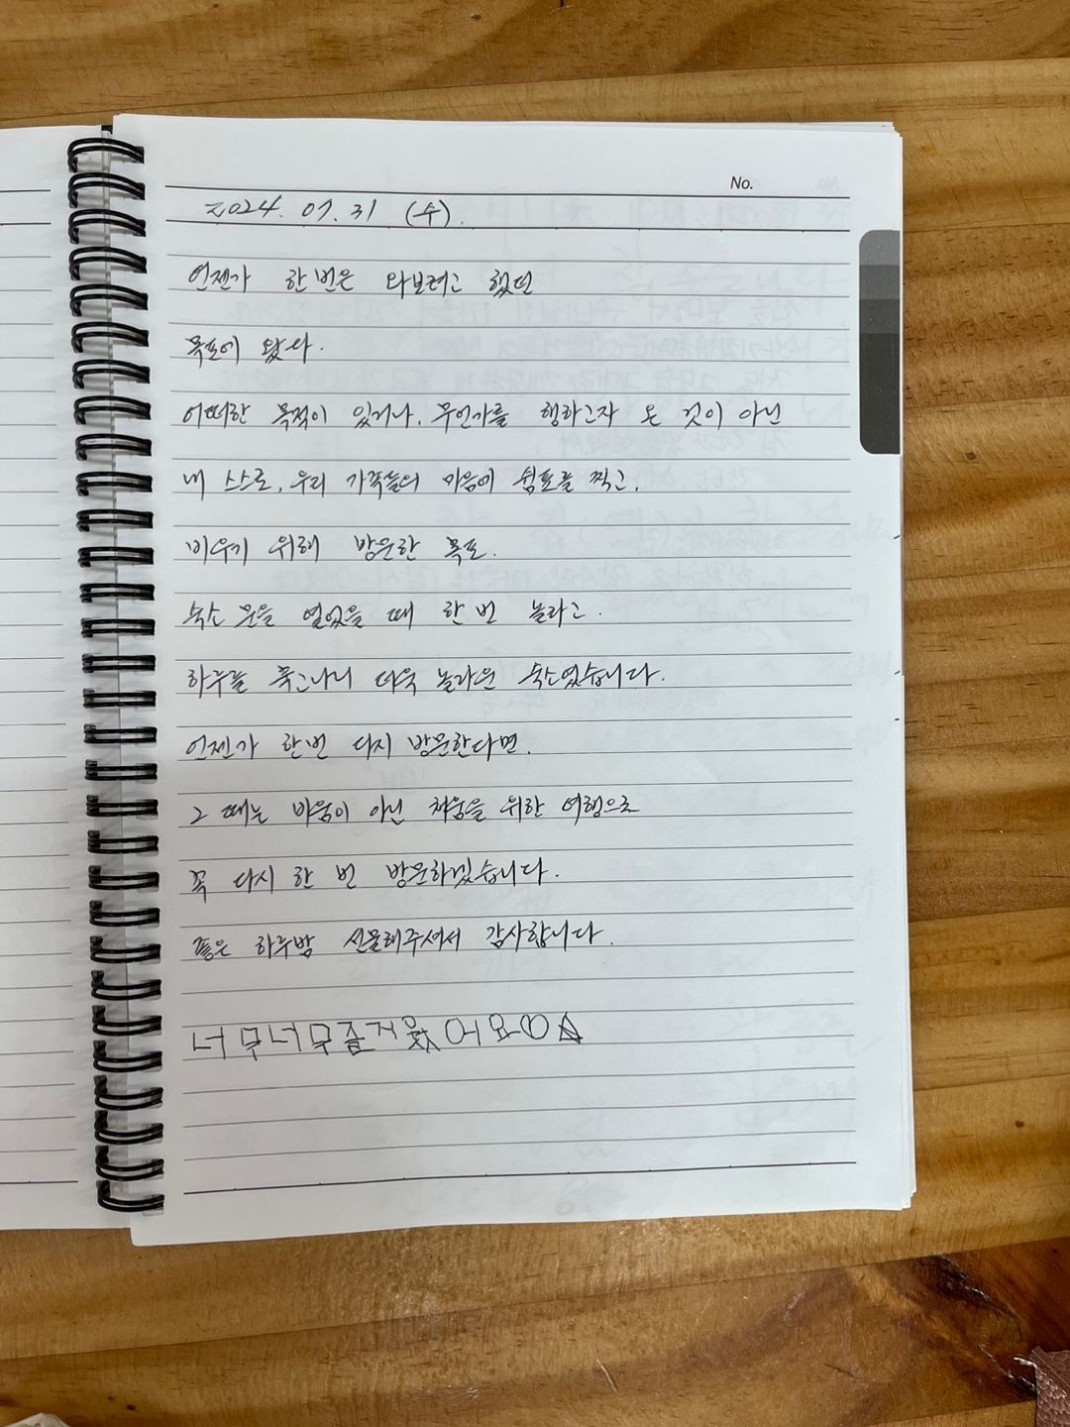 No.
2024. 07. 31 (수).
언젠가 한 번은 와보려고 했던
목포에 왔다.
어떠한 목적이 있거나, 무언가를 행하고자 온 것이 아닌
내 스스로, 우리 가족들의 마음에 쉼표를 찍고,
비우기 위해 방문한 목포.
숙소 문을 열었을 때 한 번 놀라고.
하루를 묵고나니 더욱 놀라운 숙소였습니다.
언젠가 한번 다시 방문한다면,
그 때는 비움이 아닌 채움을 위한 여행으로
꼭 다시 한 번 방문하겠습니다.
좋은 하루밤 선물해주셔서 감사합니다.
너무너무즐거웠어요♡☆